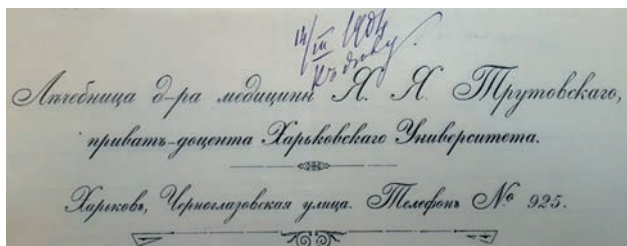 14/III 1904
Къ дѣлу.
Лѣчебница д-ра медицины Я. Я. Трутовскаго,
приватъ-доцента Харьковскаго Университета.
Харьковъ, Черноглазовская улица. Телефонъ № 925.